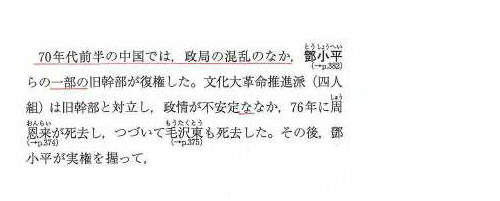 70年代前半の中国では，政局の混乱のなか，鄧小平
らの一部の旧幹部が復権した。文化大革命推進派（四人
組）は旧幹部と対立し，政情が不安定ななか，76年に周
恩来が死去し，つづいて毛沢東も死去した。その後，鄧
小平が実権を握って，
とうしょうへい
(→p.382)
しゅう
おんらい
(→p.374)
もうたくとう
(→p.375)